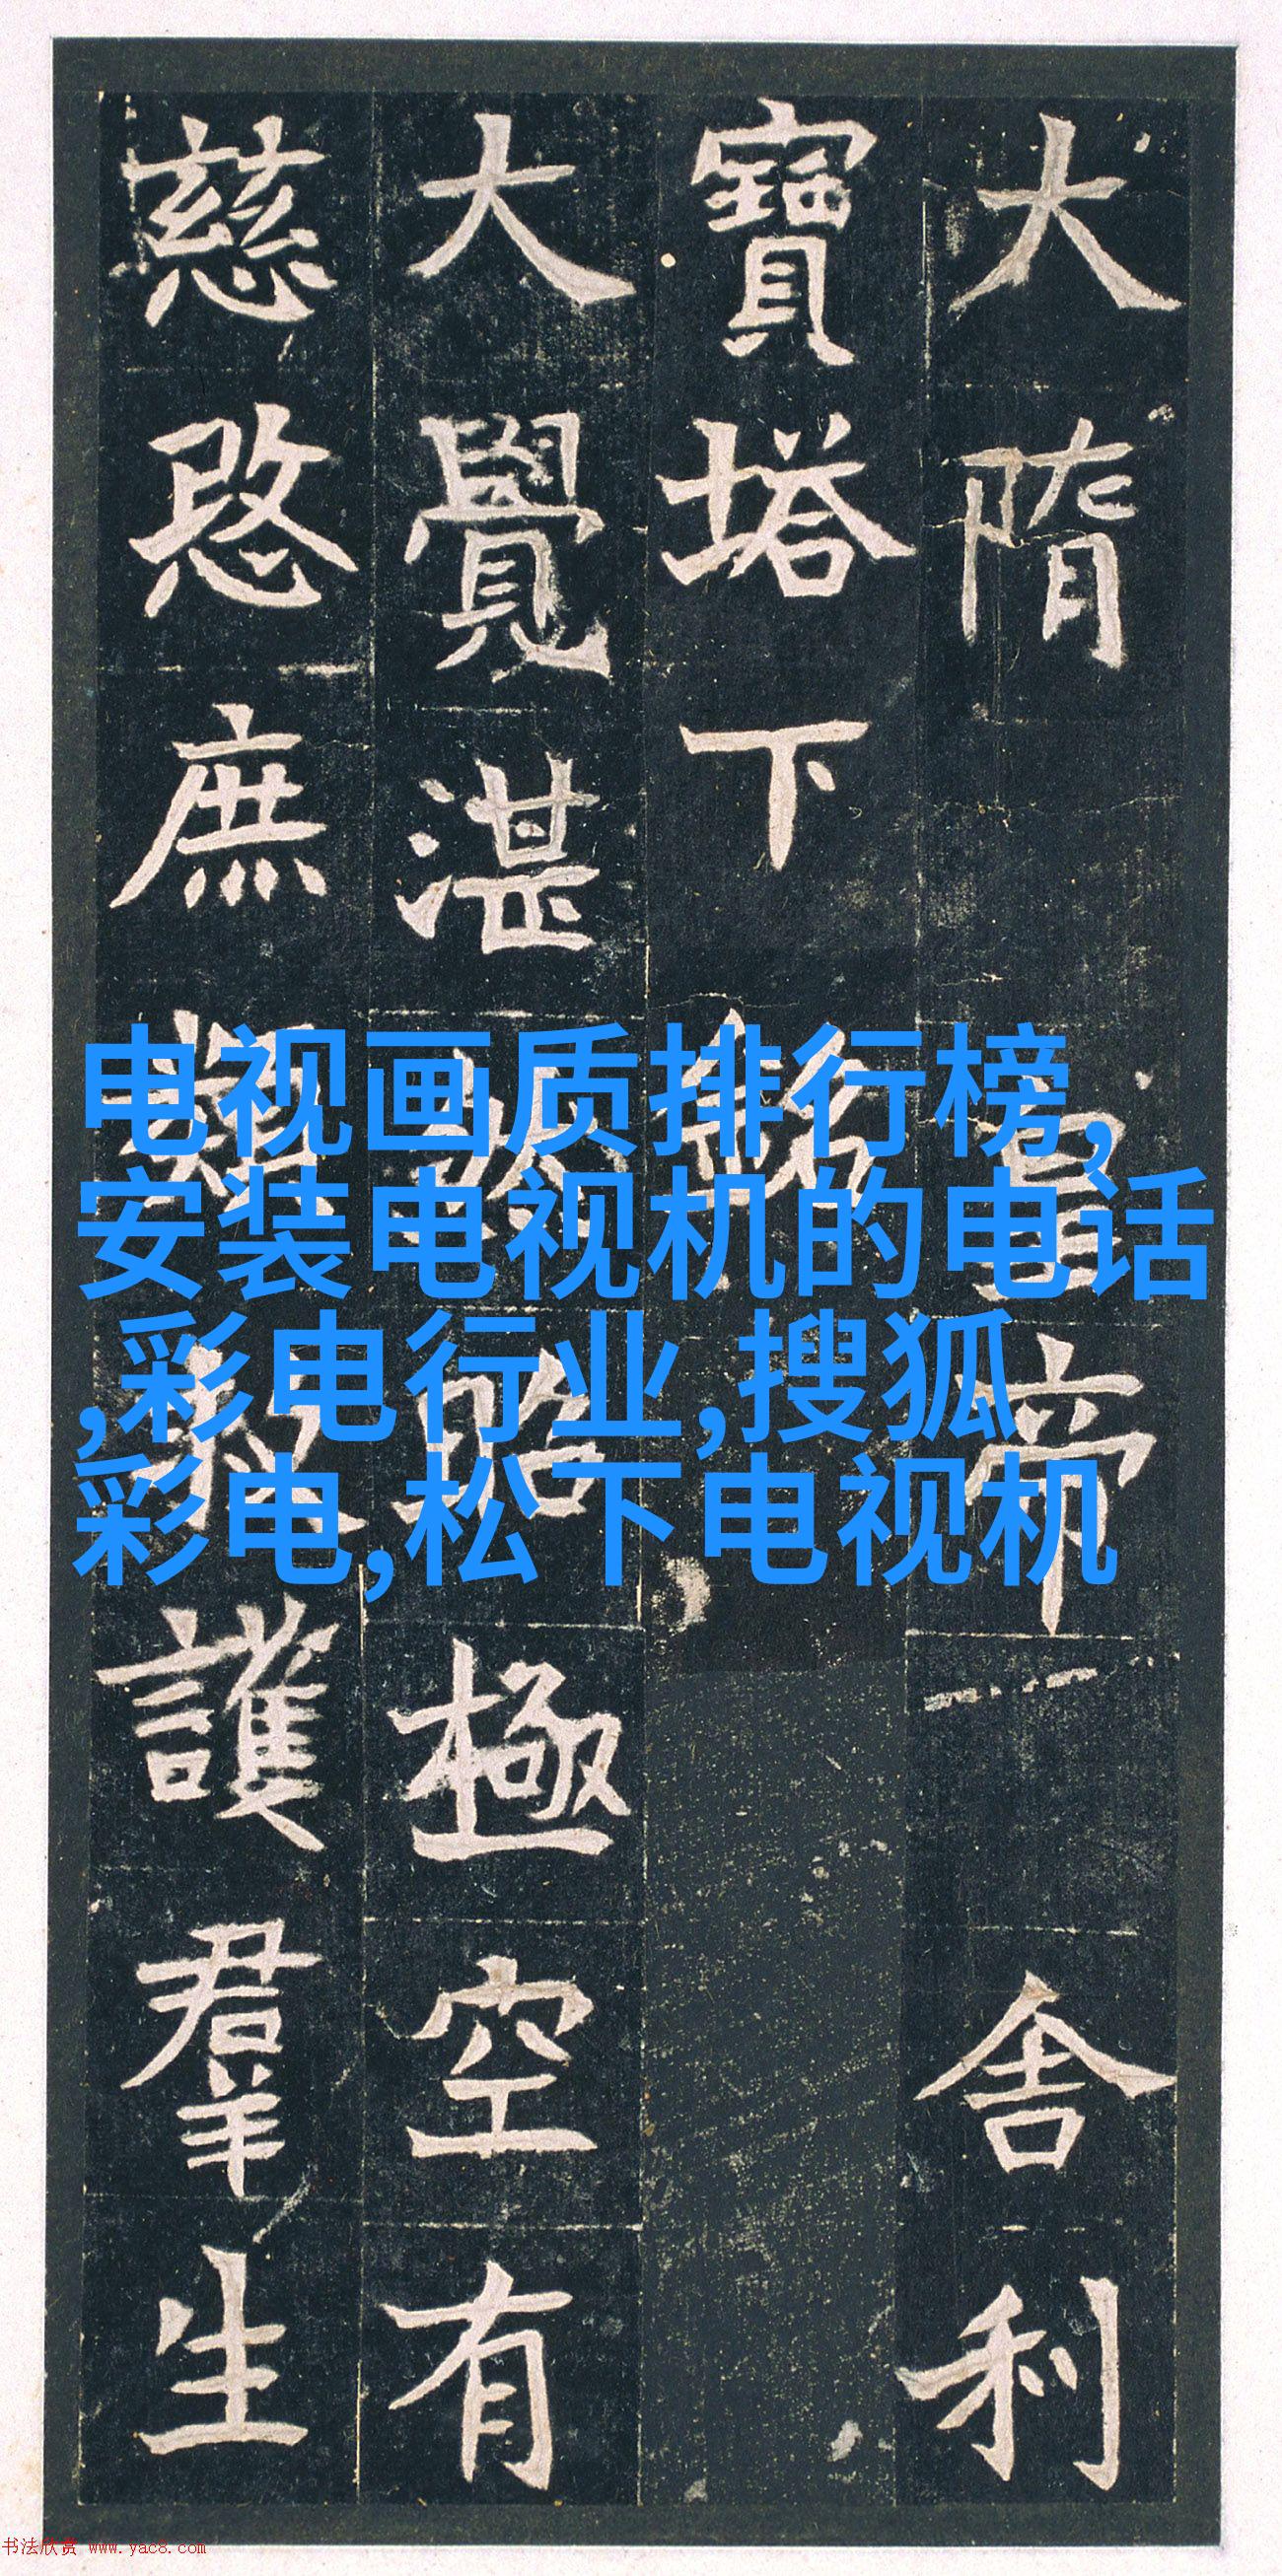 大隋皇帝舍利
寶塔下銘
大覺湛然昭極空有
慈愍庶類救護羣生
电视画质排行榜,
安装电视机的电话
,彩电行业,搜狐
彩电,松下电视机
书法欣赏 www.yac8.com